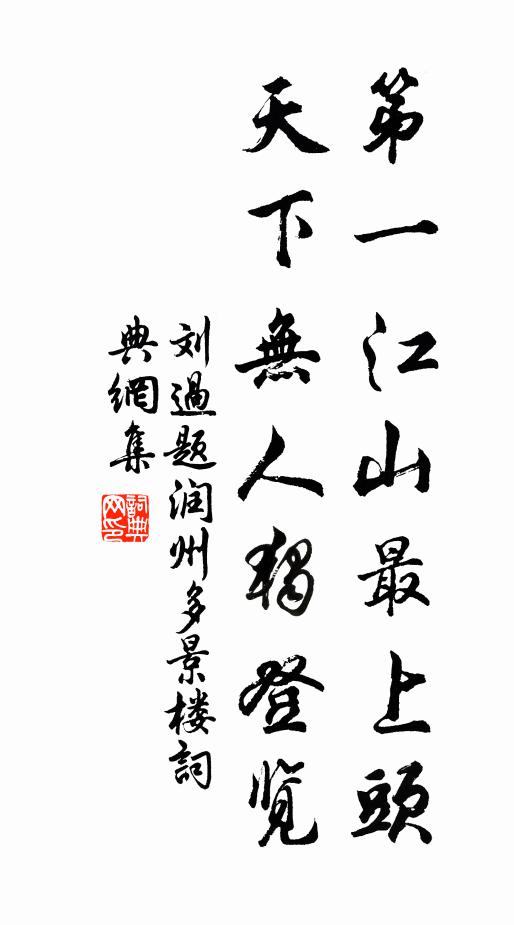 第一江山最上頭
天下無人獨登览
刘過题润州多景楼詞
典網集
詞典网印